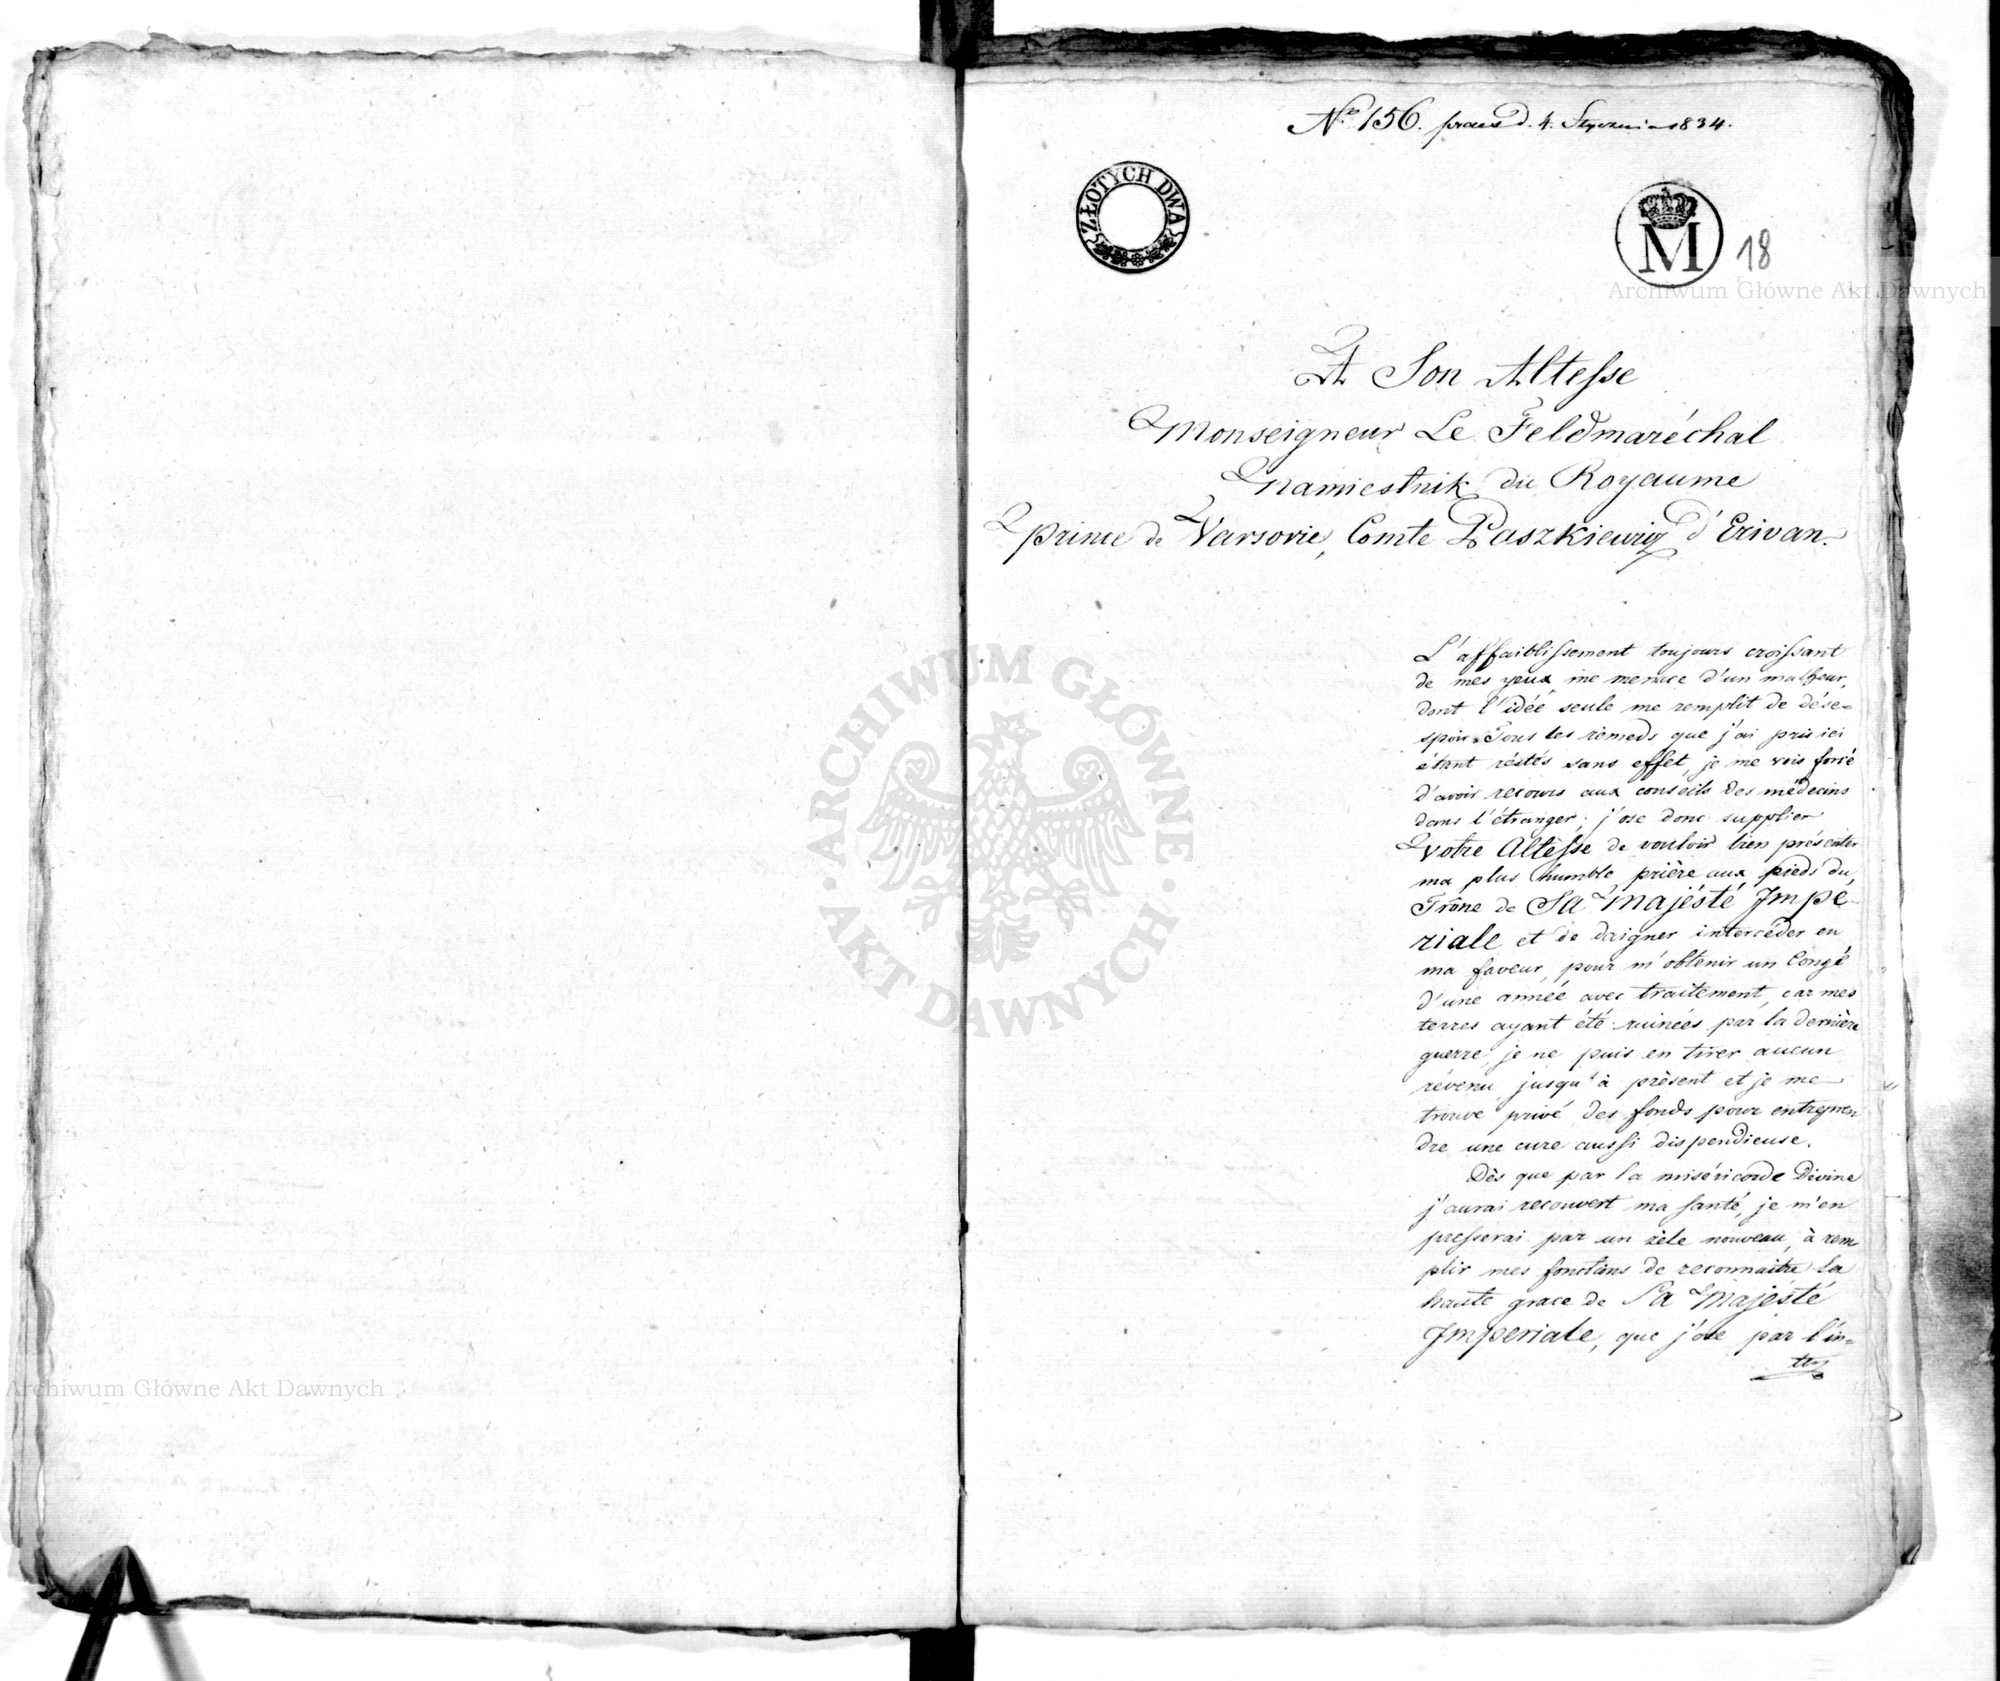 No 156. praes d. 4. Stycznia 1834.
ZŁOTYCH DWA
M
18
Archiwum Główne Akt Dawnych
A Son Altesse
Monseigneur Le Feldmaréchal
Namiestnik du Royaume
Prince de Varsovie, Comte Paszkiewicz d'Erivan.
L'affaiblissement toujours croissant
de mes yeux me menace d'un malheur,
dont l'idée seule me remplit de dése=
spoir. Tous les rèmeds que j'ai pris ici
étant réstés sans effet, je me vois forcé
d'avoir recours aux conseils des médecins
dans l'étranger; j'ose donc supplier
Votre Altèsse de vouloir bien présenter
ma plus humble prière aux pieds du
Trône de Sa Majésté Impé-
riale et de daigner intercéder en
ma faveur, pour m'obtenir un Congé
d'une année avec traitement, car mes
terres ayant été ruinées par la dernière
guerre, je ne puis en tirer aucun
révenu jusqu'à prèsent et je me
trouve privé des fonds pour entrepren
dre une cure aussi dispendieuse.
Dès que par la miséricorde Divine
j'aurai recouvert ma santé, je m'en
presserai par un zèle nouveau, à rem
plir mes fonctions de reconnaitre la
haute grace de Sa Majésté
Imperiale, que j'ose par l'in=
ter
ARCHIWUM GŁÓWNE
AKT DAWNYCH
Archiwum Główne Akt Dawnych